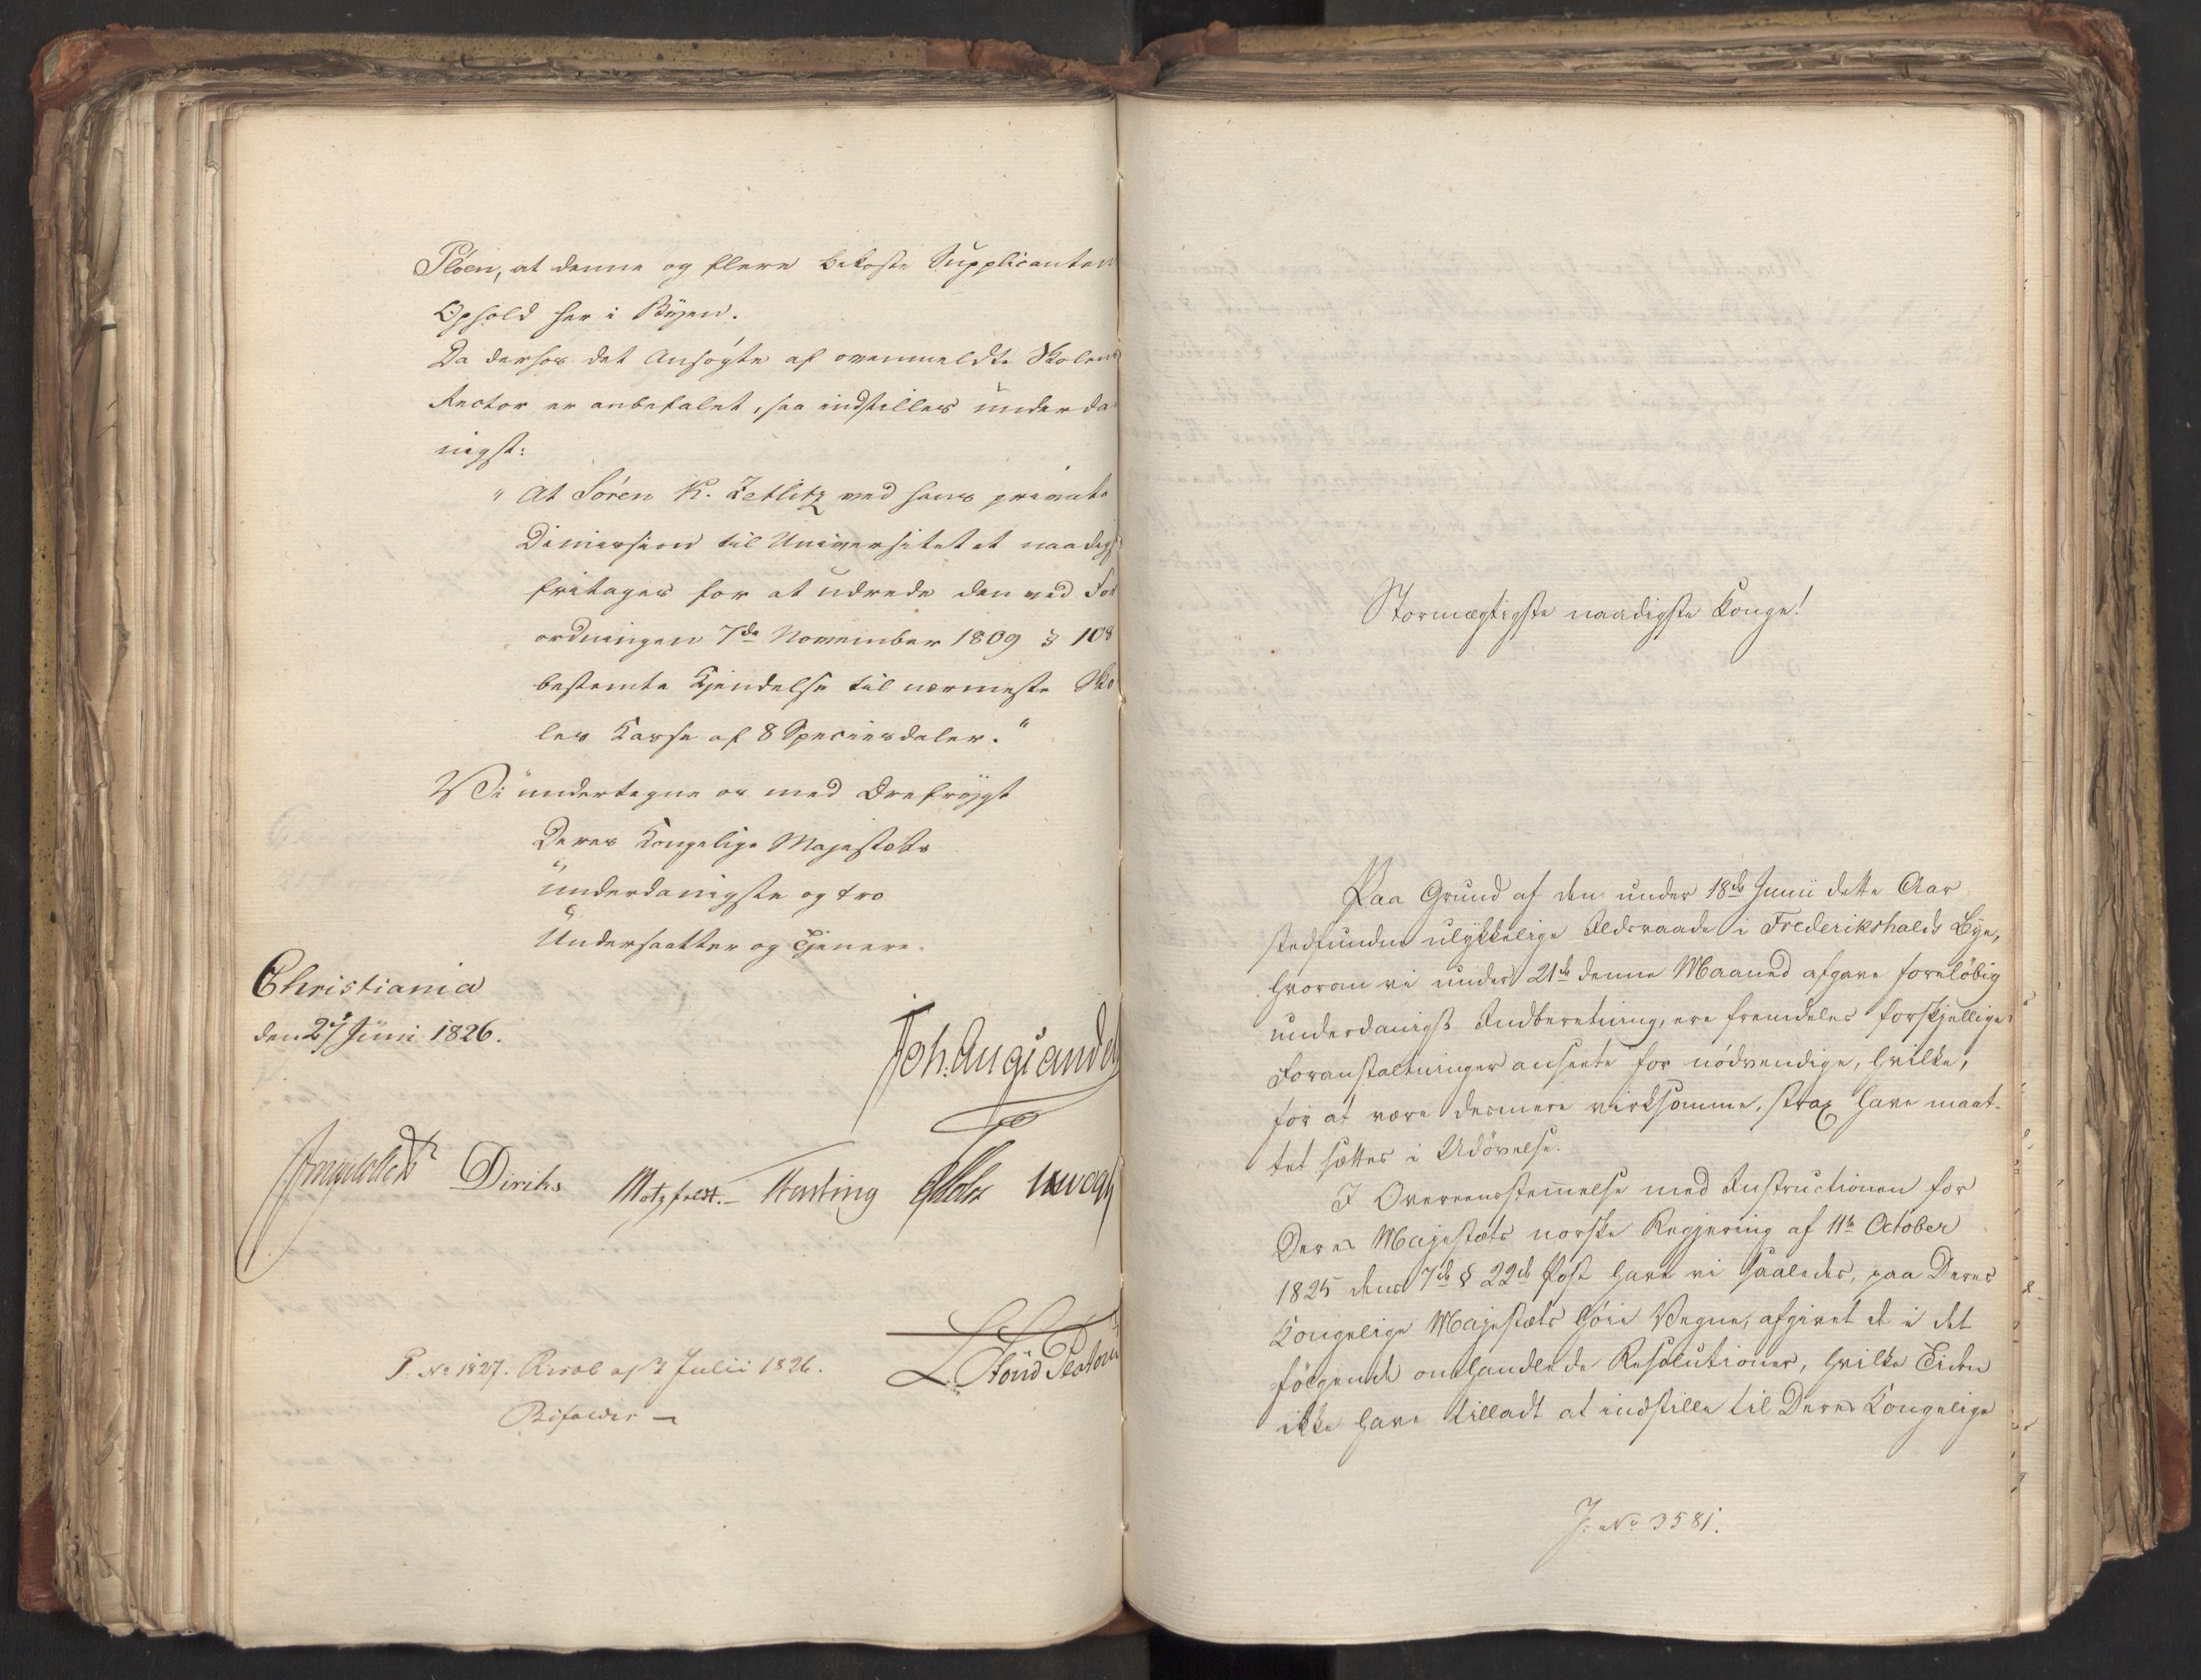 Ploen, at denne og flere bekoste Supplicanten
Ophold her i Byen.
Da derhos det Ansøgte af ovenmeldte Skolens
Rector er anbefalet, saa indstilles underda
nigst:
"At Sören K. Zetlitz ved hans private
Dimission til Universitetet naadigst
fritages for at udrede den ved For
ordningen 7de November 1809 § 108
bestemte Kjendelse til nærmeste Sko
les Kasse af 8 Speciesdaler."
Vi undertegne os med Ærefrygt
Deres Kongelige Majestæts
underdanigste og tro
Undersaatter og Tjenere.
Christiania
den 27 Juni 1826.
Diriks Motzfeldt. Hersting
P. No 1827. Resol af 3 Julii 1826.
Bifaldes
Stormægtigste naadigste Konge!
Paa Grund af den under 18de Junii dette Aar
stedfundne ulykkelige Ildsvaade i Frederikshalds Bye,
hvorom vi under 21de denne Maaned afgave foreløbig
underdanigst Indberetning, ere fremdeles forskjellige
Foranstaltninger anseete for nødvendige, hvilke,
for at være desmere virksomme, strax have maat-
tet sættes i Udøvelse.
I Overeensstemmelse med Instructionen for
Deres Majestæts norske Regjering af 11te October
1825 dens 7de § 22de Post have vi saaledes, paa Deres
Kongelige Majestæts høie Vegne, afgivet de i det
følgende omhandlede Resolutioner, hvilke Tiden
ikke have tilladt at indstille til Deres Kongelige
J. No 3581.